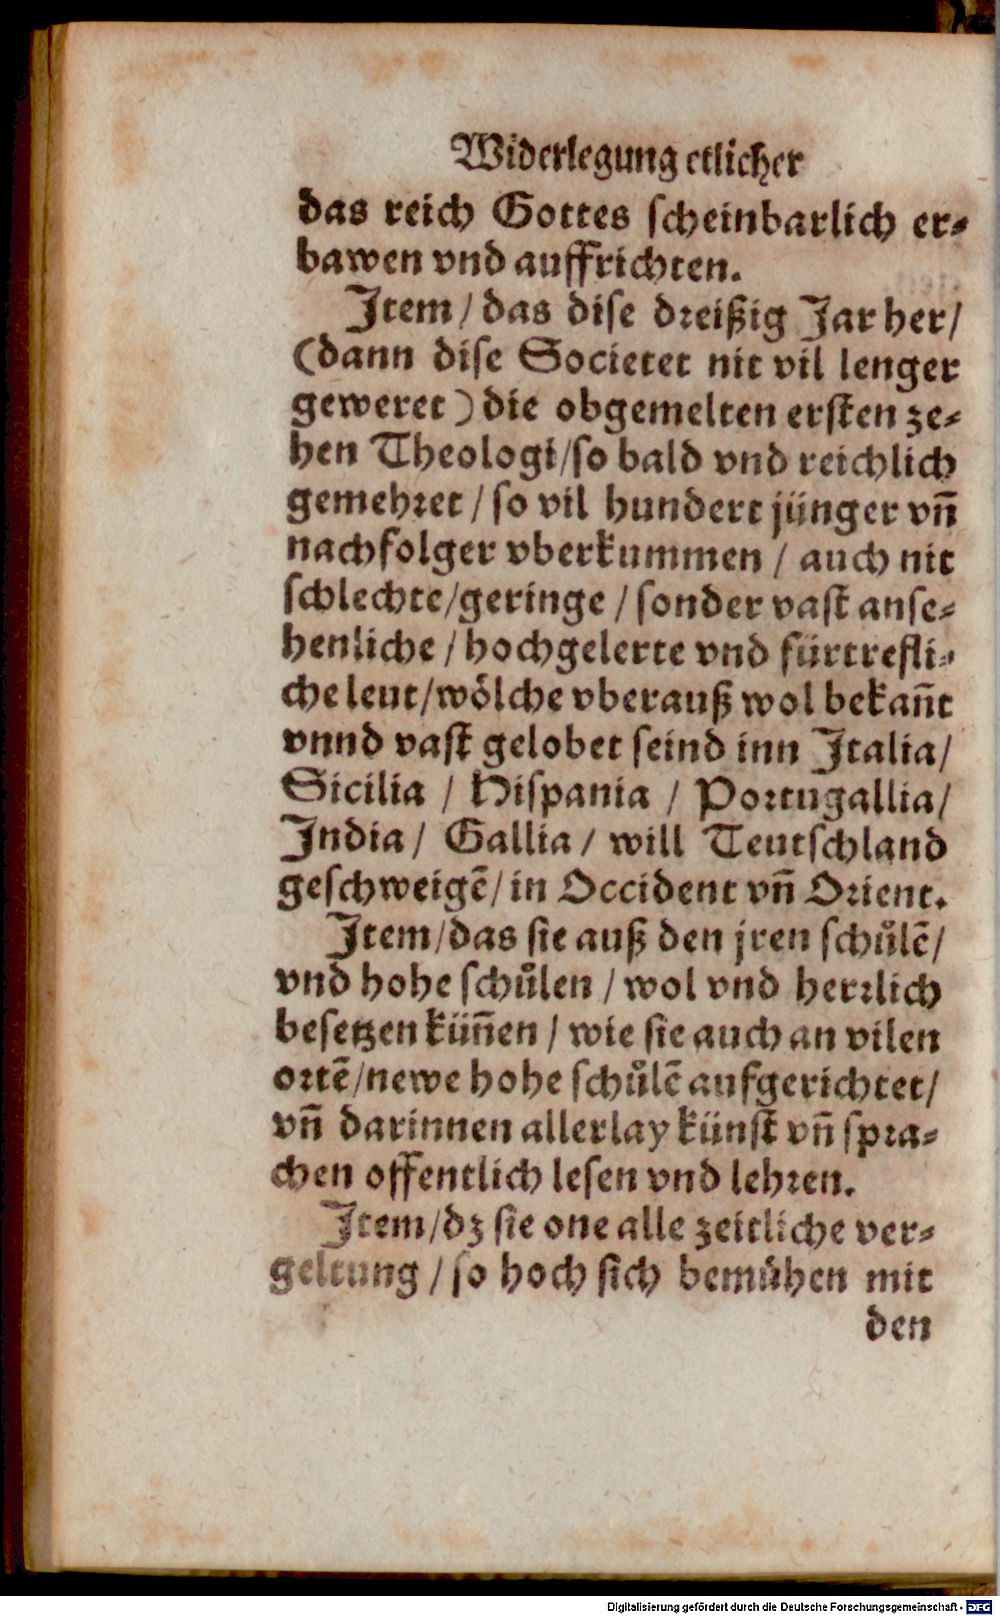 Widerlegung etlicher
das reich Gottes scheinbarlich er⸗
bawen vnd auffrichten.
Item / das dise dreißig Jar her /
(dann dise Societet nit vil lenger
geweret) die obgemelten ersten ze⸗
hen Theologi / so bald vnd reichlich
gemehret / so vil hundert jünger vn̄
nachfolger vberkummen / auch nit
schlechte / geringe / sonder vast anse⸗
henliche / hochgelerte vnd fürtrefli⸗
che leut / wölche vberauß wol bekan̄t
vnnd vast gelobet seind inn Italia /
Sicilia / Hispania / Portugallia /
India / Gallia / will Teutschland
geschweigē / in Occident vn̄ Orient.
Item / das sie auß den jren schůlē /
vnd hohe schůlen / wol vnd herrlich
besetzen kün̄en / wie sie auch an vilen
ortē / newe hohe schůlē aufgerichtet /
vn̄ darinnen allerlay künst vn̄ spra⸗
chen offentlich lesen vnd lehren.
Item / dz sie one alle zeitliche ver⸗
geltung / so hoch sich bemühen mit
den
Digitalisierung gefördert durch die Deutsche Forschungsgemeinschaft - DFG